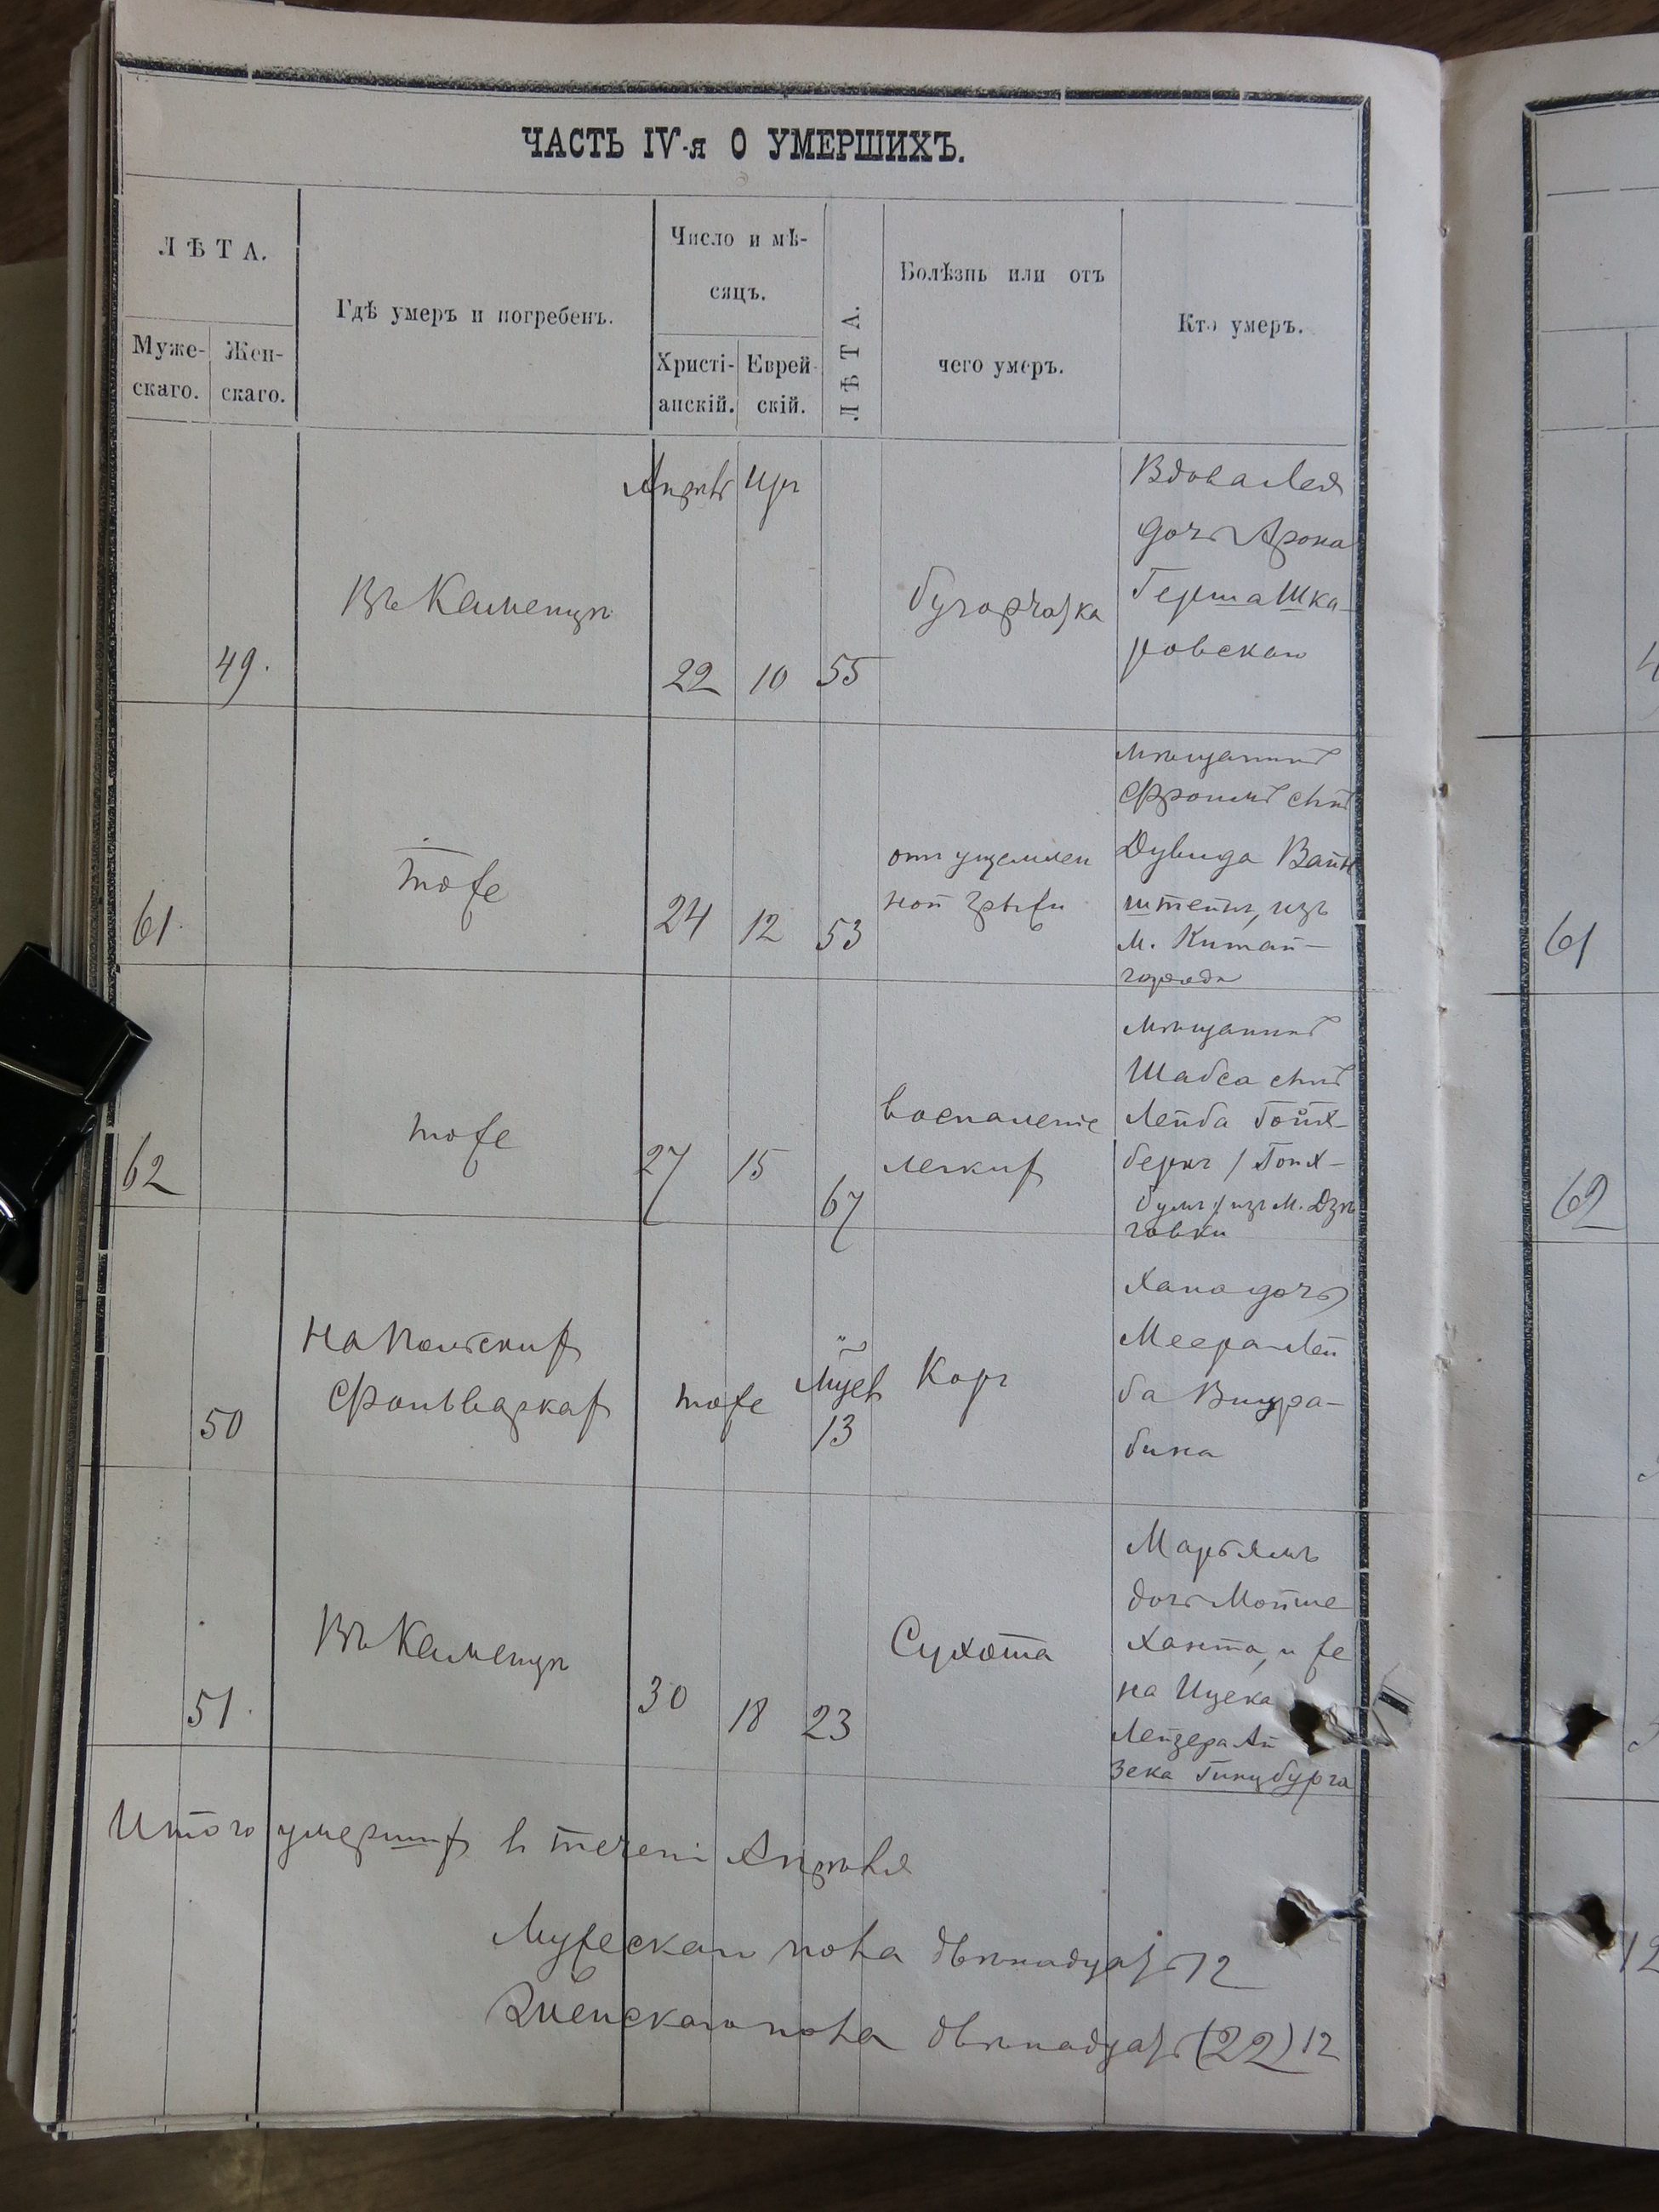 ЧАСТЬ IV-я О УМЕРШИХЪ.
ЛѢТА.
Муже-
скаго.
Жен-
скаго.
Гдѣ умеръ и погребенъ.
Число и мѣ-
сяцъ.
Христі-
анскій.
Еврей-
скій.
ЛѢТА.
Болѣзнь или отъ
чего умеръ.
Кто умеръ.
49.
Въ Каменцѣ
Апрѣль
22
Иръ
10
55
бугорчатка
Вдова Лея
дочь Арона
Герша Шка-
ровская
61.
тоже
24
12
53
отъ ущемлен
ной грыжи
мѣщанинъ
Фроимъ сынъ
Дувида Вайн
штейнъ, изъ
М. Китай-
города
62
тоже
27
15
67
воспаленіе
легкихъ
мѣщанинъ
Шабса сынъ
Лейба
изъ М.
50
На Польскихъ
Фольваркахъ
тоже
Мѣсяцев
13
Корь
Хана дочь
Меера Лей
ба
51.
Въ Каменцѣ
30
18
23
Сухота
Марьямъ
дочь Мойше
Ханта, и же
на Ицека
Лейзера Ай
зека Гинцбурга
Итого умершихъ в течени Апрѣля
Мужескаго пола двѣнадцать 12
Женскаго пола двѣнадцать (22) 12
61
62
12